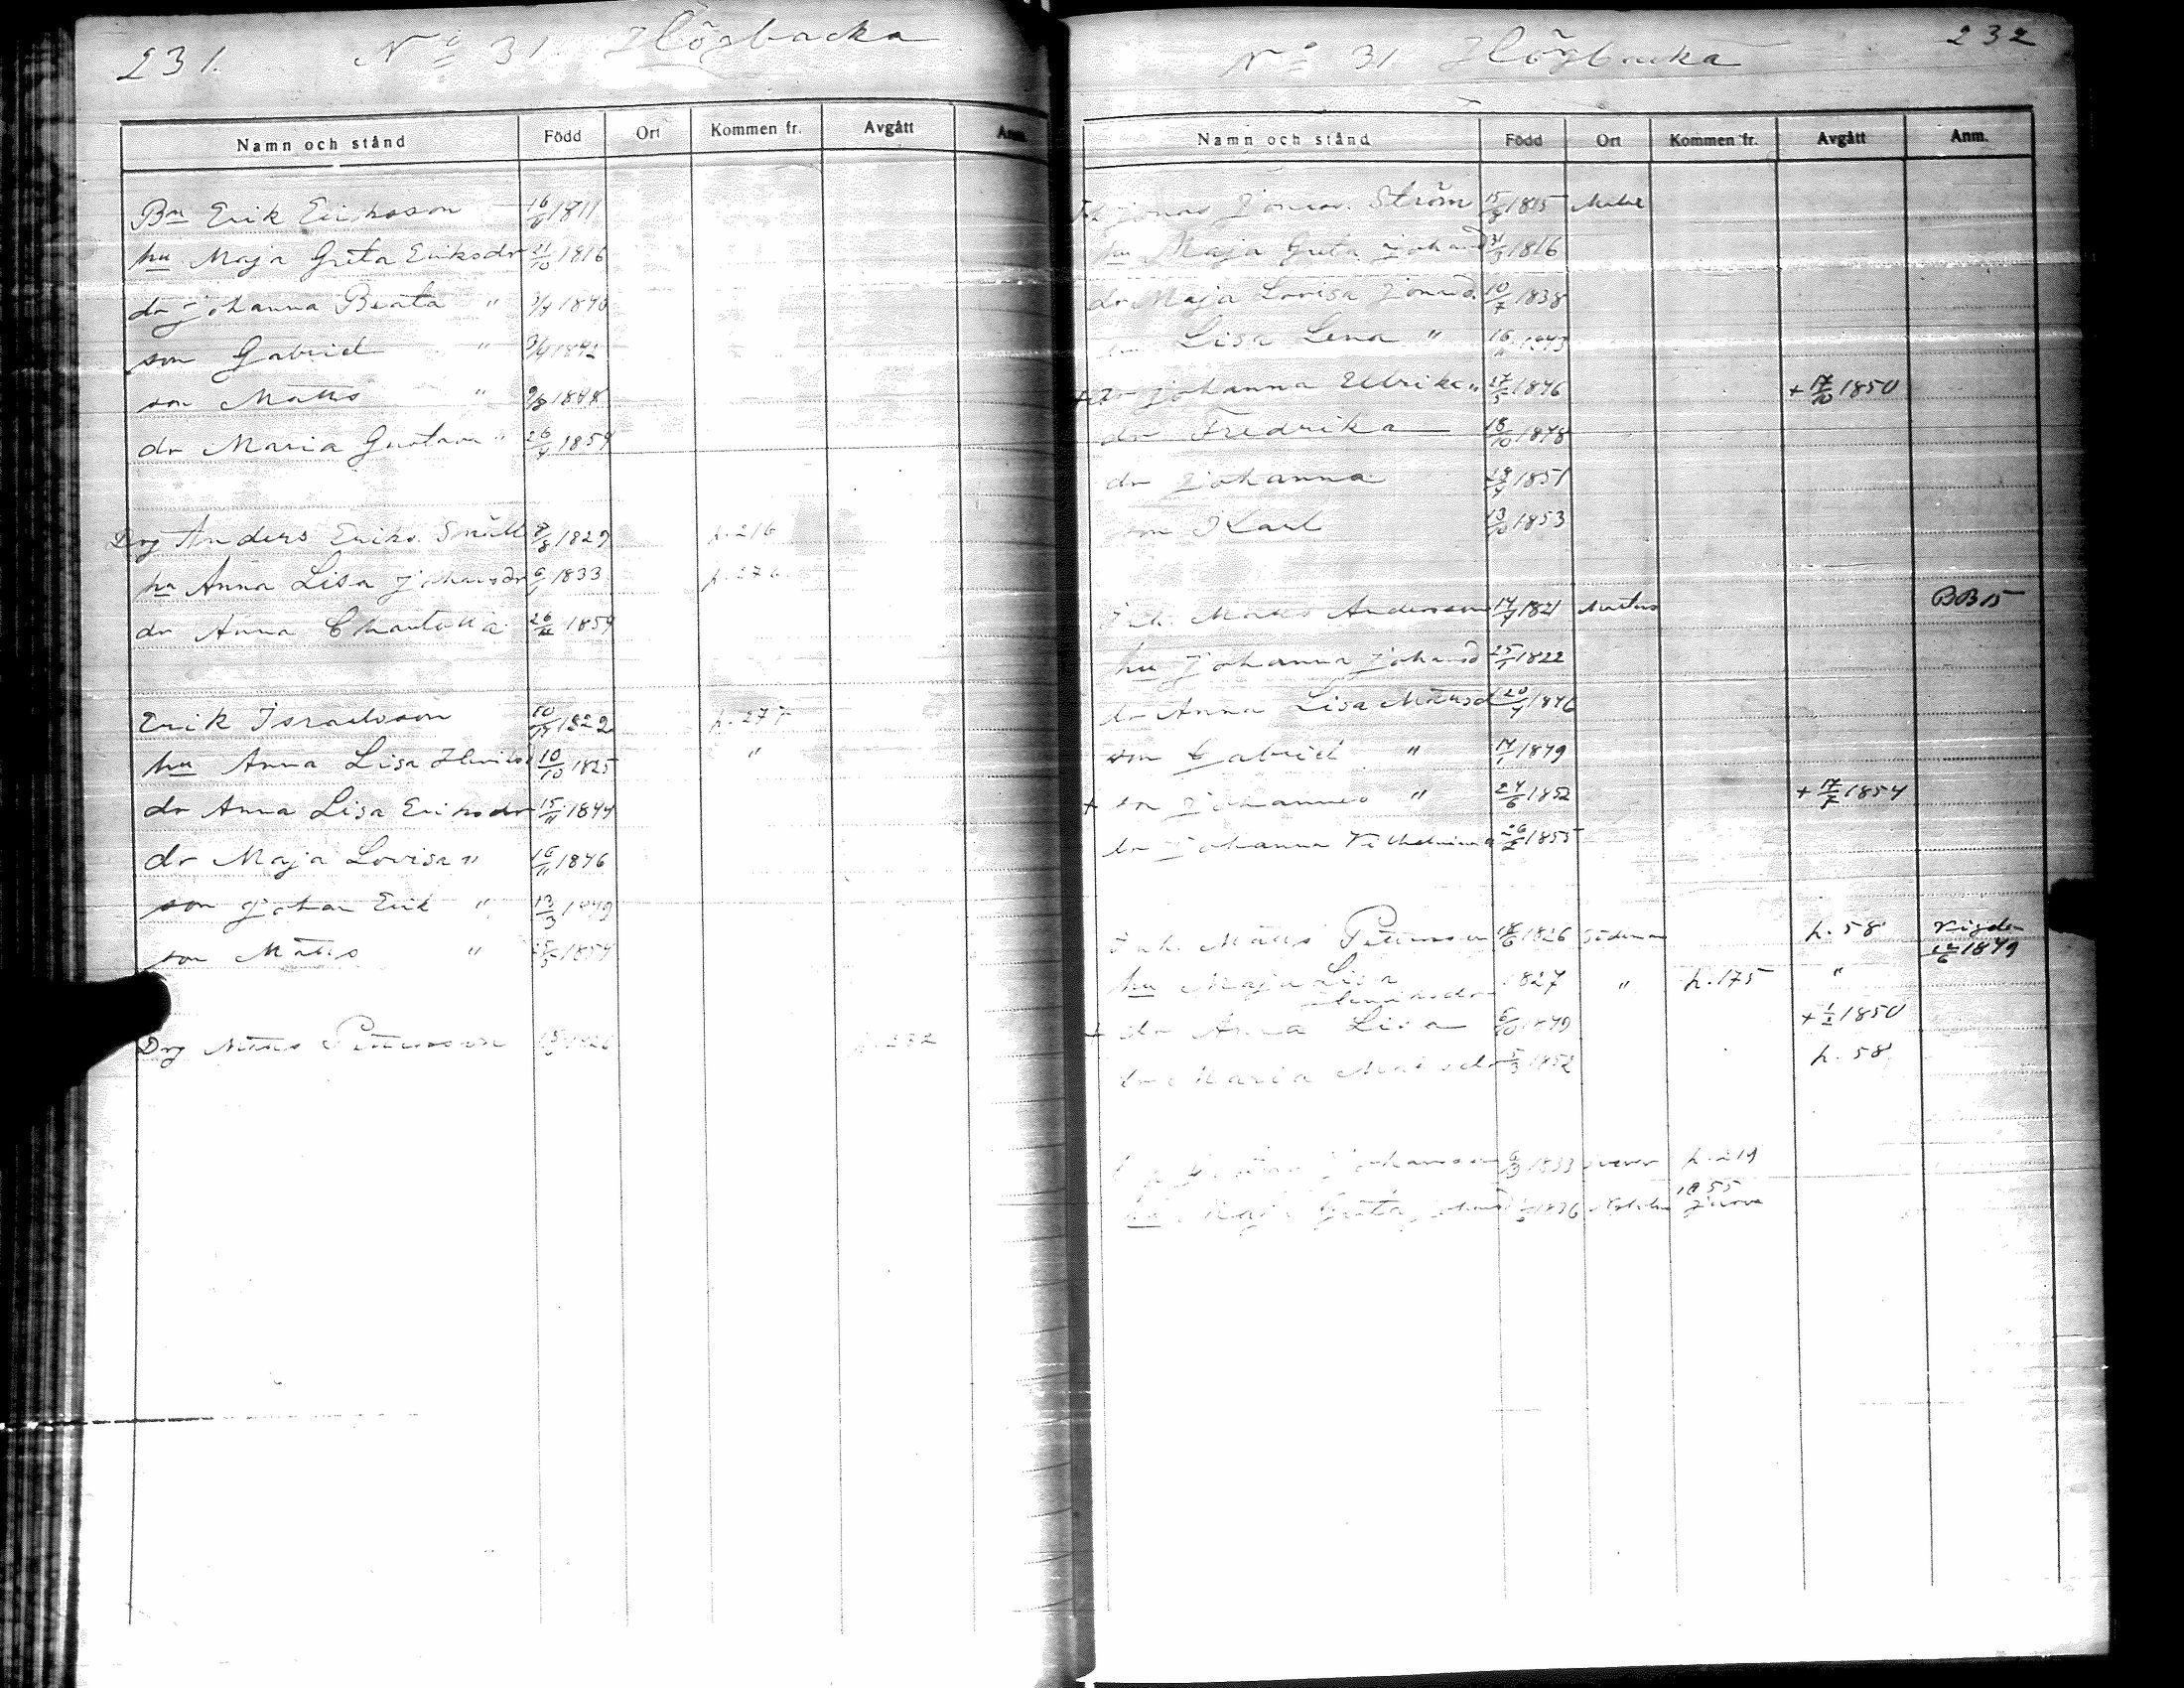 231. No 31 Högbacka
Namn och stånd Född Ort Kommen fr. Avgått Anm.
Bn Erik Eriksson 16/6 1811
hu Maja Greta Eriksdr 21/10 1816
dr Johanna Beata " 1840
son Gabriel " 1842
son Matts " 9/8 1848
dr Maria Gustava " 26/4 1854
Drg Anders Eriks. Snäll 8/8 1829 p. 216
hu Anna Lisa Johansdr 6/1 1833 p. 276
dr Anna Charlotta 26/11 1854
Erik Israelsson 10/4 1822 p. 277
hu Anna Lisa Henriksd 10/10 1825 "
dr Anna Lisa Eriksdr 15/11 1844
dr Maja Lovisa " 16/11 1846
son Johan Erik " 13/3 1849
son Matts " 1854
Drg Matts Pettersson p. 232
No 31 Högbacka 232
Namn och stånd Född Ort Kommen fr. Avgått Anm.
Jonas Jonass. Ström 15/8 1815
hu Maja Greta Johansd 31/3 1816
dr Maja Lovisa Jonasd. 10/7 1838
Lisa Lena " 16 1843
+ dr Johanna Ullrika " 27/5 1846 + 17/10 1850
dr Fredrika 18/10 1848
dr Johanna 1851
son Karl 13/10 1853
Inh. Matts Andersson 14/7 1821 BB 15
hu Johanna Johansd 25/1 1822
dr Anna Lisa Mattsd 20/4 1846
son Gabriel " 14/1 1849
+ son Johannes " 24/6 1852 + 17/7 1854
dr Johanna Vilhelmina 26/2 1855
Inh. Matts Pettersson 18/6 1826 p. 58 Vigda
hu Maja Lisa 1827 " p. 175 " 1849
Henriksdr
+ dr Anna Lisa 6/10 1849 + 1/2 1850
dr Maria Mattsdr 5/3 1852 p. 58
Johansson 1833 p. 219
hu Maja Greta 1836 1855